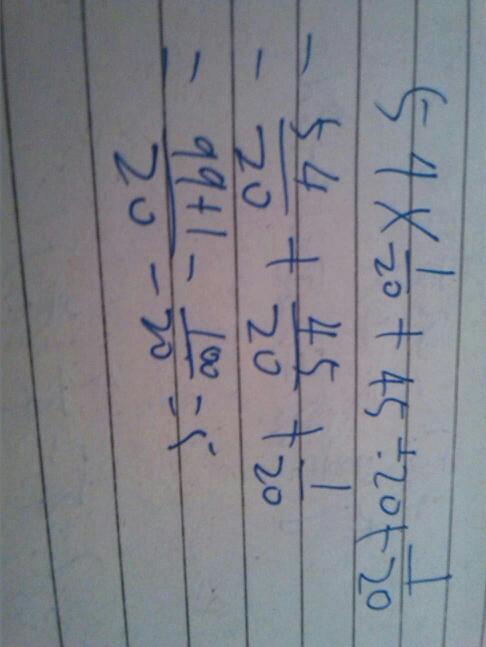 54 × 1/20 + 45 ÷ 20 + 1/20
= 54/20 + 45/20 + 1/20
= 99+1/20 = 100/20 = 5